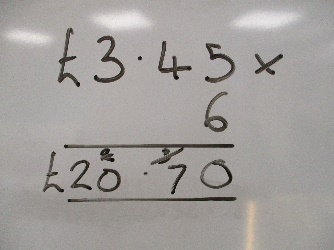 £3·45 ×
6
£20·70